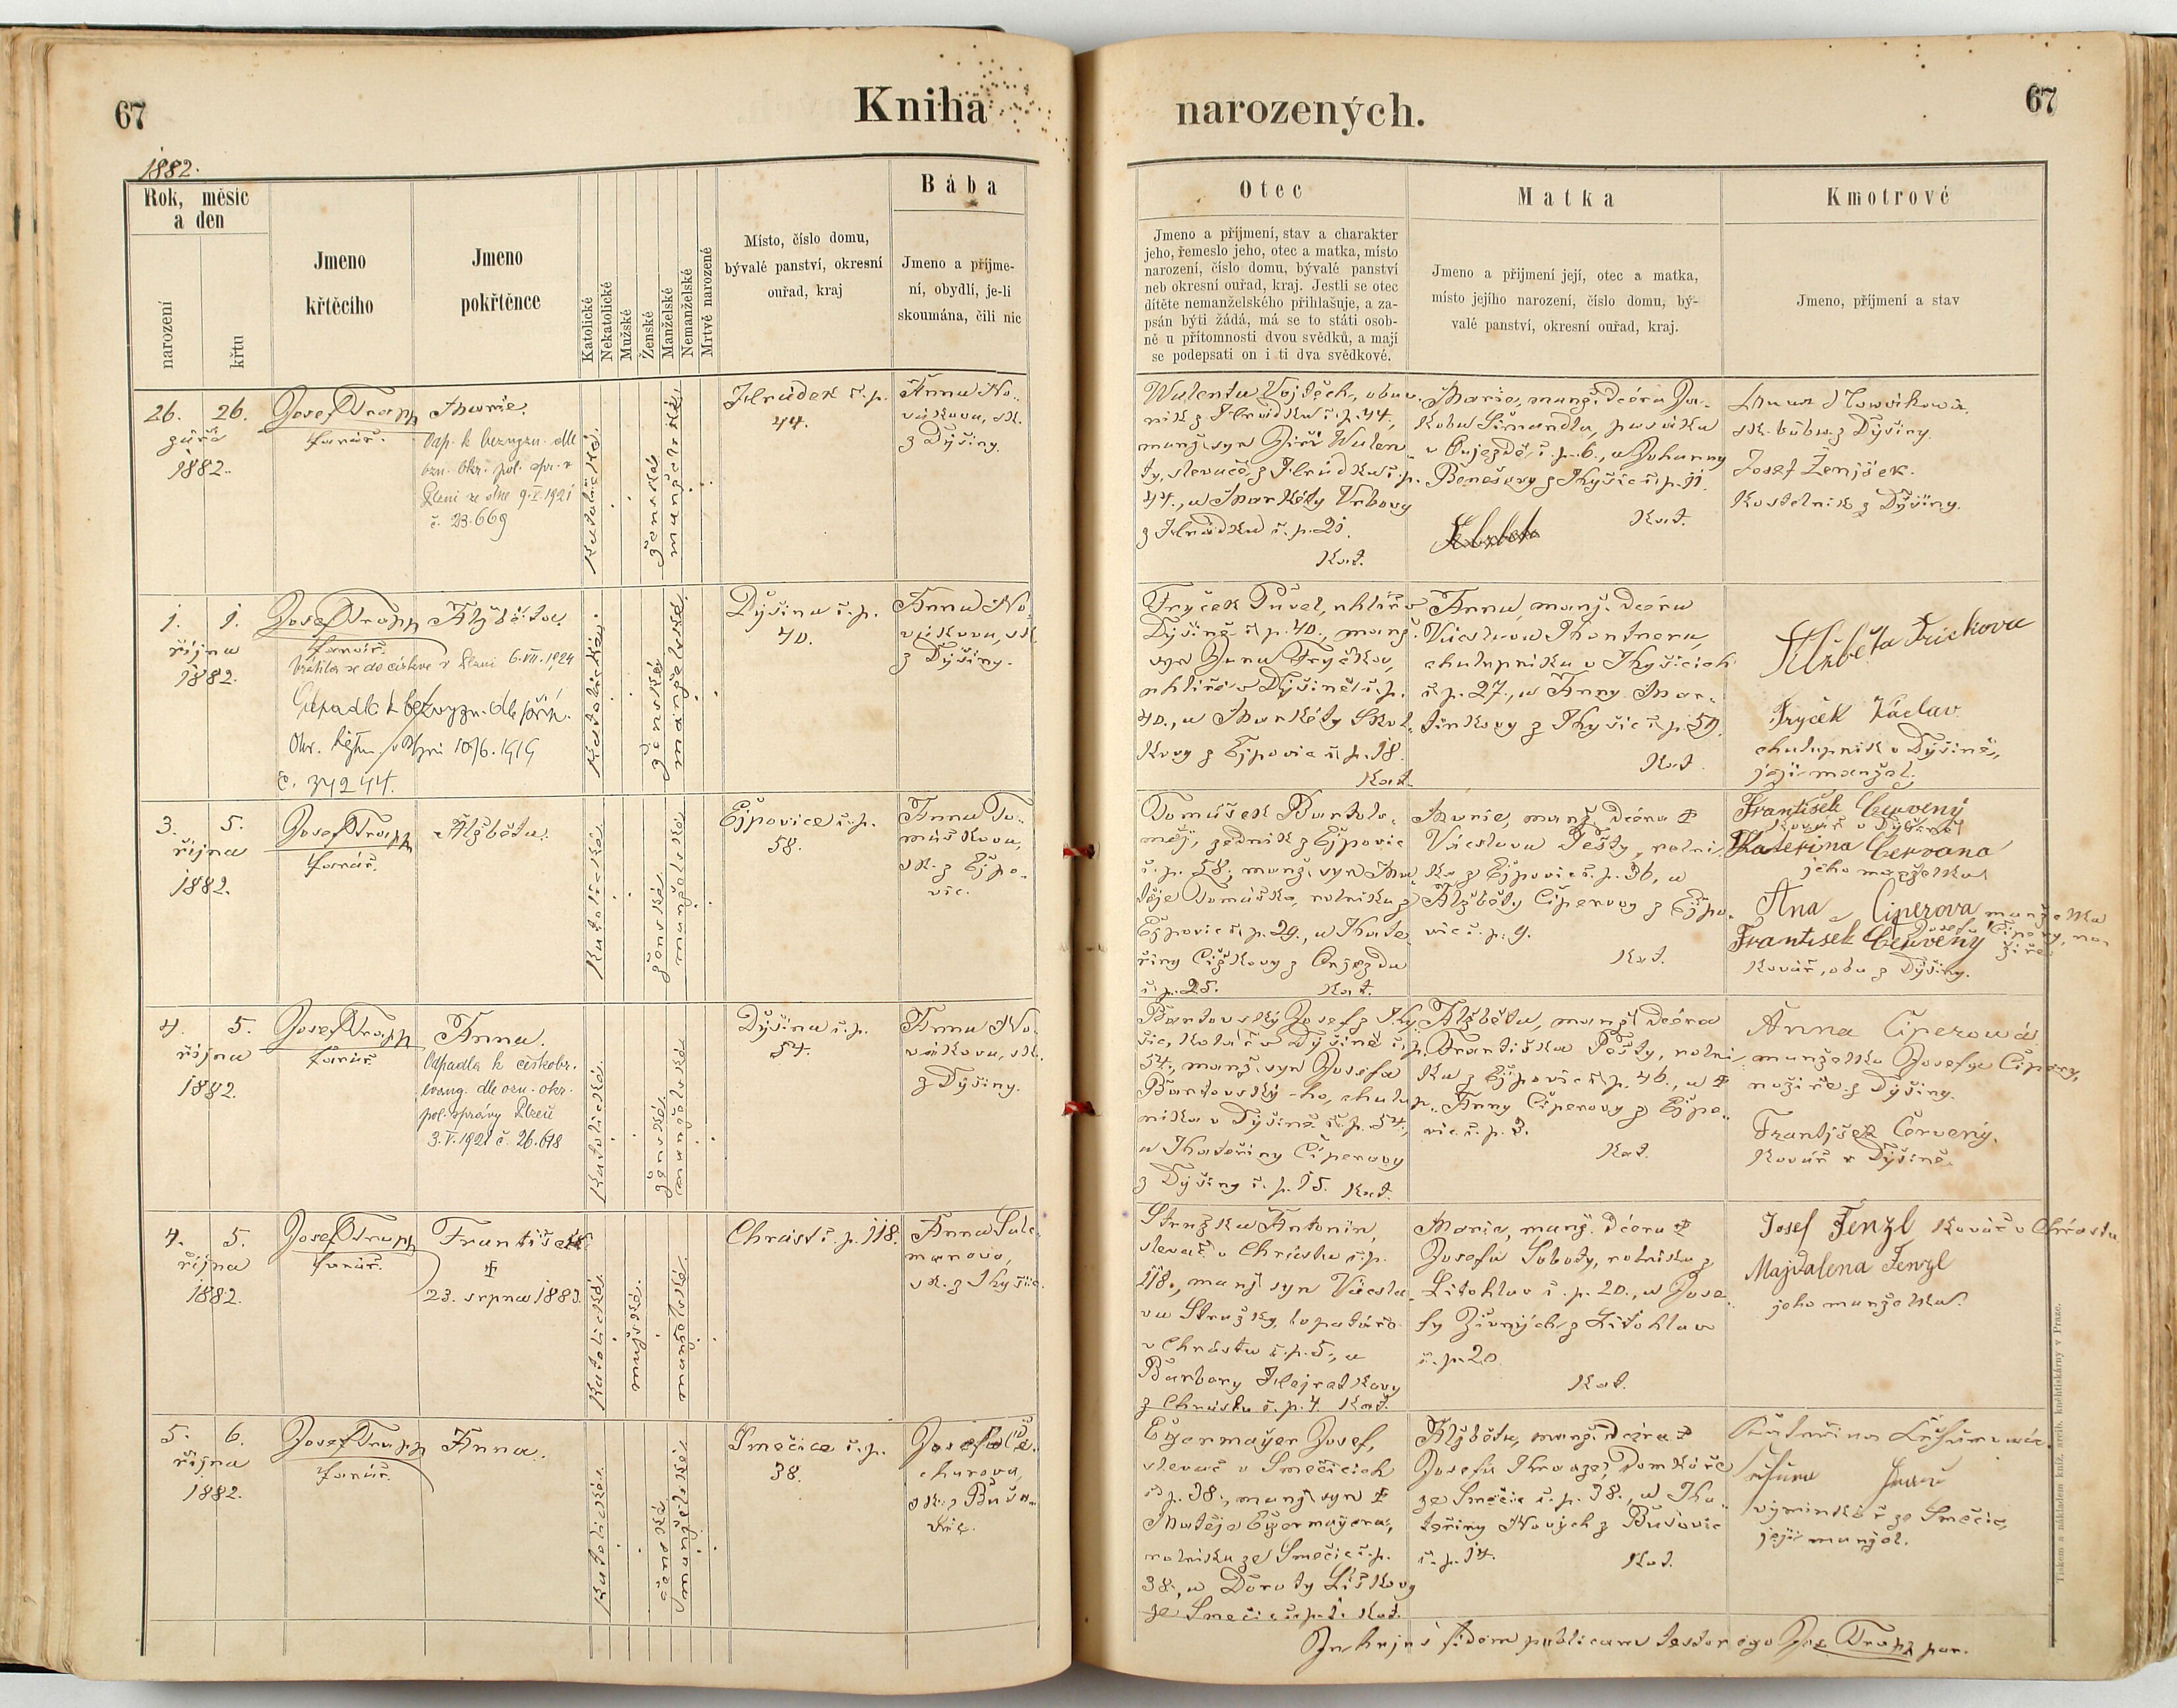 67
Kniha
narozených.
67
1882.
Rok, měsíc
a den
narození
křtu
Jmeno
křtěcího
Jmeno
pokřtěnce
Katolické
Nekatolické
Mužské
Ženské
Manželské
Nemanželské
Mrtvě narozené
Místo, číslo domu,
bývalé panství, okresní
ouřad, kraj
Bába
Jmeno a příjme-
ní, obydlí, je-li
skoumána, čili nic
Otec
Jmeno a příjmení, stav a charakter
jeho, řemeslo jeho, otec a matka, místo
narození, číslo domu, bývalé panství
neb okresní ouřad, kraj. Jestli se otec
dítěte nemanželského přihlašuje, a za-
psán býti žádá, má se to státi osob-
ně u přítomnosti dvou svědků, a mají
se podepsati on i ti dva svědkové.
Matka
Jmeno a příjmení její, otec a matka,
místo jejího narození, číslo domu, bý-
valé panství, okresní ouřad, kraj.
Kmotrové
Jmeno, příjmení a stav
26. 26.
září
1882.
Josef Trapp
farář.
Marie.
Odp. k bezvyzn. dle
ozn. okr. pol. spr. v
Plzni ze dne 9.V.1921
č. 23.669
Katolické.
ženské
manželské
Hrádek č. p.
44.
Anna No-
váková, zk.
z Dýšiny.
Valenta Vojtěch,
ník z Hrádku č. p. 44.,
manž. syn Jiří Valen-
ty, slevače z Hrádku č. p.
44., a Markéty Vrbovy
z Hrádku č. p. 21.
Kat.
Marie, manž. dcera Ja-
koba Šimandla, pasáka
v Oujezdě, č. p. 6., a Johanny
Benešovy z Kyšic č. p. 11.
Kat.
Anna Nowáková
zk. bába z Dýšiny.
Josef Ženjšek.
Kostelník z Dýšiny.
1. 1.
října
1882.
Josef Trapp
farář.
Alžběta.
Vrátila se do církve v Plzni 6.VII.1924
Odpadla k bezvyzn. dle příp.
Okr. hejtm. v Plzni 10/6.1919
č. 34244.
Katolické.
ženské
manželské
Dýšina č. p.
40.
Anna No-
váková, zk.
z Dýšiny.
Fryček Pavel, uhlíř v
Dýšině č. p. 40., manž.
syn Jana Fryčka,
uhlíře v Dýšině č. p.
40., a Markéty
kovy z Ejpovic č. p. 18.
Kat.
Anna, manž. dcera
Václava Kantnera,
chalupníka v Kyšicích
č. p. 27., a Anny Mar-
tínkovy z Kyšic č. p. 59.
Kat.
Alžběta Fričkova
Fryček Václav
chalupník v Dýšině,
její manžel.
3. 5.
října
1882.
Josef Trapp
farář.
Alžběta.
Katolické
ženské
manželské
Ejpovice č. p.
58.
Anna To-
mášková,
zk. z Ejpo-
vic.
Tomášek Bartolo-
měj, zedník z Ejpovic
č. p. 58., manž. syn Ma-
těje Tomáška, rolníka z
Ejpovic č. p. 29., a Kate-
řiny Čížkovy z Oujezda
č. p. 25. Kat.
Marie, manž. dcera ‡
Václava Pešty, rolní-
ka z Ejpovic č. p. 36, a
Alžběty Čiperovy z Ejpo-
vic č. p. 9.
Kat.
František Červený
Kovář v Dýšině
Kateřina Červená
jeho manželka
Ana Čiperova manželka
Josefa Čipery, no-
František Červený žíře
Kovář, oba z Dýšiny.
4. 5.
října
1882.
Josef Trapp
farář.
Anna.
Odpadla k českobr.
evang. dle ozn. okr.
pol. správy Plzeň
3.V.1921 č. 26.618
Katolické
ženské
manželské
Dýšina č. p.
54.
Anna No-
váková, zk.
z Dýšiny.
Bartovský Josef z Ky-
šic, kolář v Dýšině č. p.
54., manž. syn Josefa
Bartovský-ho, chalup-
níka v Dýšině č. p. 54.,
a Kateřiny Čiperovy
z Dýšiny č. p. 15. Kat.
Alžběta, manž. dcera
Františka Pešty, rolní-
ka z Ejpovic č. p. 46., a ‡
Anny Čiperovy z Ejpo-
vic č. p. 3.
Kat.
Anna Čiperowá
manželka Josefa Čipery,
nožíře z Dýšiny.
Frantjšek Červený.
Kovář v Dýšině.
4. 5.
října
1882.
Josef Trapp
farář.
František
‡
23. srpna 1883.
Katolické
mužské
manželské
Chrást č. p. 118.
Anna
manová,
zk. z Kyšic.
Stružka Antonín,
slevač v Chrástu č. p.
118., manž. syn Václa-
va Stružky, lopatáře
v Chrástu č. p. 5., a
Barbory Hejratkovy
z Chrástu č. p. 4. Kat.
Marie, manž. dcera ‡
Josefa Soboty, rolníka z
Litohlav č. p. 20., a Jose-
fy Živných z Litohlav
č. p. 20.
Kat.
Josef Fenzl Kovář v Chrástu
Majdalena Fenzl
jeho manželka.
5. 6.
října
1882.
Josef Trapp
farář.
Anna.
Katolické
ženské
manželské
Smečice č. p.
38.
Josefa
churová,
zk. z Bušo-
vic.
Egermayer Josef,
slevač v Smečicích
č. p. 38., manž. syn ‡
Matěje Egermayera,
rolníka ze Smečic č. p.
38., a Doroty Liškovy
ze Smečic č. p. 1. Kat.
Alžběta, manž. dcera ‡
Josefa domkáře
ze Smečic č. p. 38., a Ka-
teřiny Nových z Bušovic
č. p. 14.
Kat.
Kateřina
výminkář ze Smečic,
její manžel.
In hujus fidem publicam testor ego Jos. Trapp par.
Tiskem a nákladem kníž. arcib. knihtiskárny v Praze.